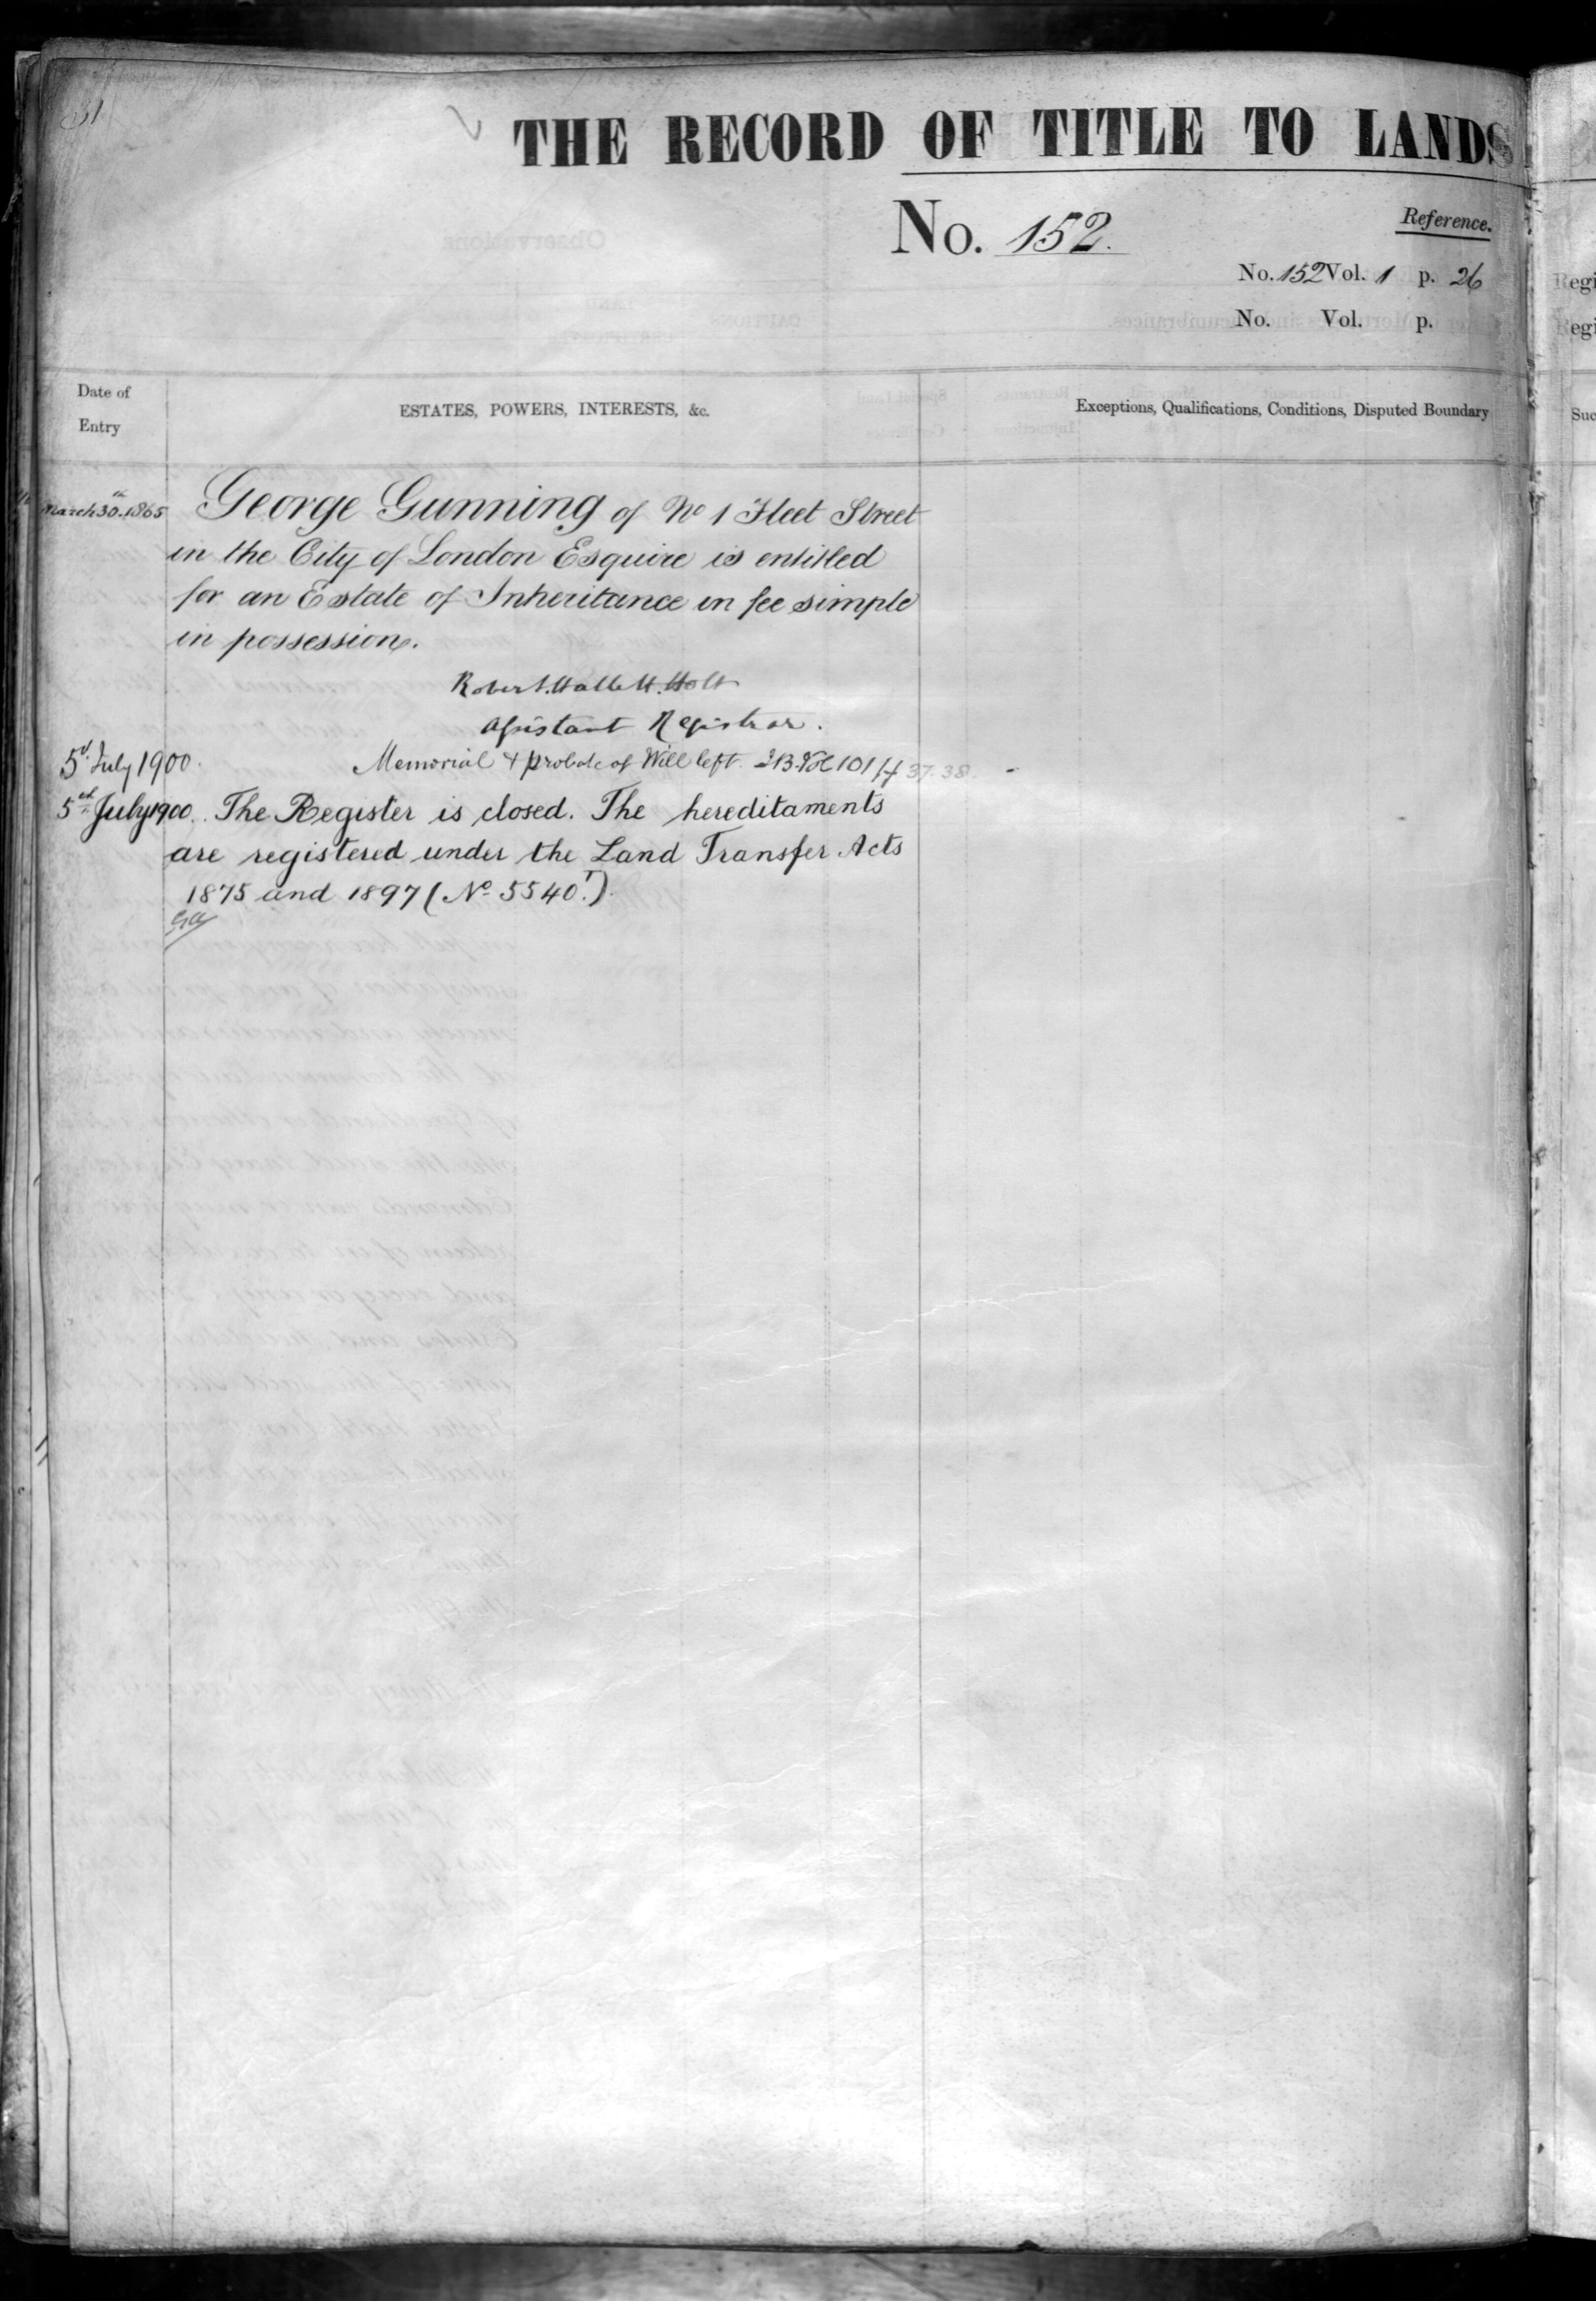 31
THE RECORD OF TITLE TO LANDS
No. 152.
Reference.
No. 152 Vol. 1 p. 26
No. Vol. p.
Date of
Entry
ESTATES, POWERS, INTERESTS, &c.
Exceptions, Qualifications, Conditions, Disputed Boundary
March 30th. 1865 George Gunning of No 1 Fleet Street
in the City of London Esquire is entitled
for an Estate of Inheritance in fee simple
in possession.
Robert Hallett Holt
Assistant Registrar.
5 July 1900. Memorial & probate of Will left 101 ff 37. 38.
5th July 1900. The Register is closed. The hereditaments
are registered under the Land Transfer Acts
1875 and 1897 (No 5540.)
Regi
Regi
Suc